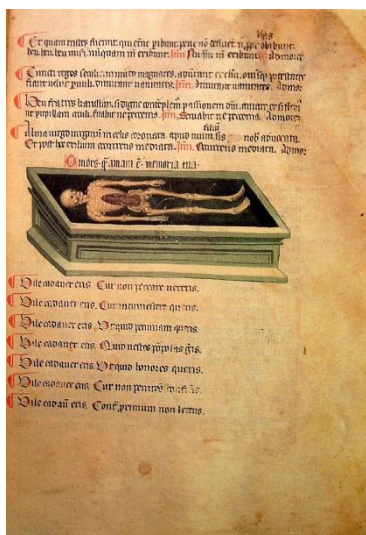 Et quam tristes fuerint qui etne peribunt. pene no deficiet. n. pp obibunt.
has
heu. heu. heu miseri. nunquam in exibunt. exibunt. Ad morte
Cuncti reges seculi. et in mundo magnates. advertant et clerici. omnesque potestates
fiant velut pueuli. dimitant vanitates. dimitant vanitates. Ad mor
Heu fratres karissimi. si digne contemplem passionem dni. amare et si flem
ut pupillam oculi. servabit ne peccem. Servabit ne peccem. Ad morte
filiu
Alma virgo virginum in celis coronata. apud tuum sis nob advocata
Et post hoc exilium occurrens mediata. Occurrens mediata. Ad mor
O mors q amara e memoria tua
Vile cadaver eris. Cur non peccare vereris.
Vile cadaver eris. Cur intumescere queris.
Vile cadaver eris. Ut quid peccuniam queris.
Vile cadaver eris. Quid vestes pomposas geris.
Vile cadaver eris. Ut quid honores queris.
Vile cadaver eris. Cur non penitens
Vile cadav eris. Contra proximum non leteris.